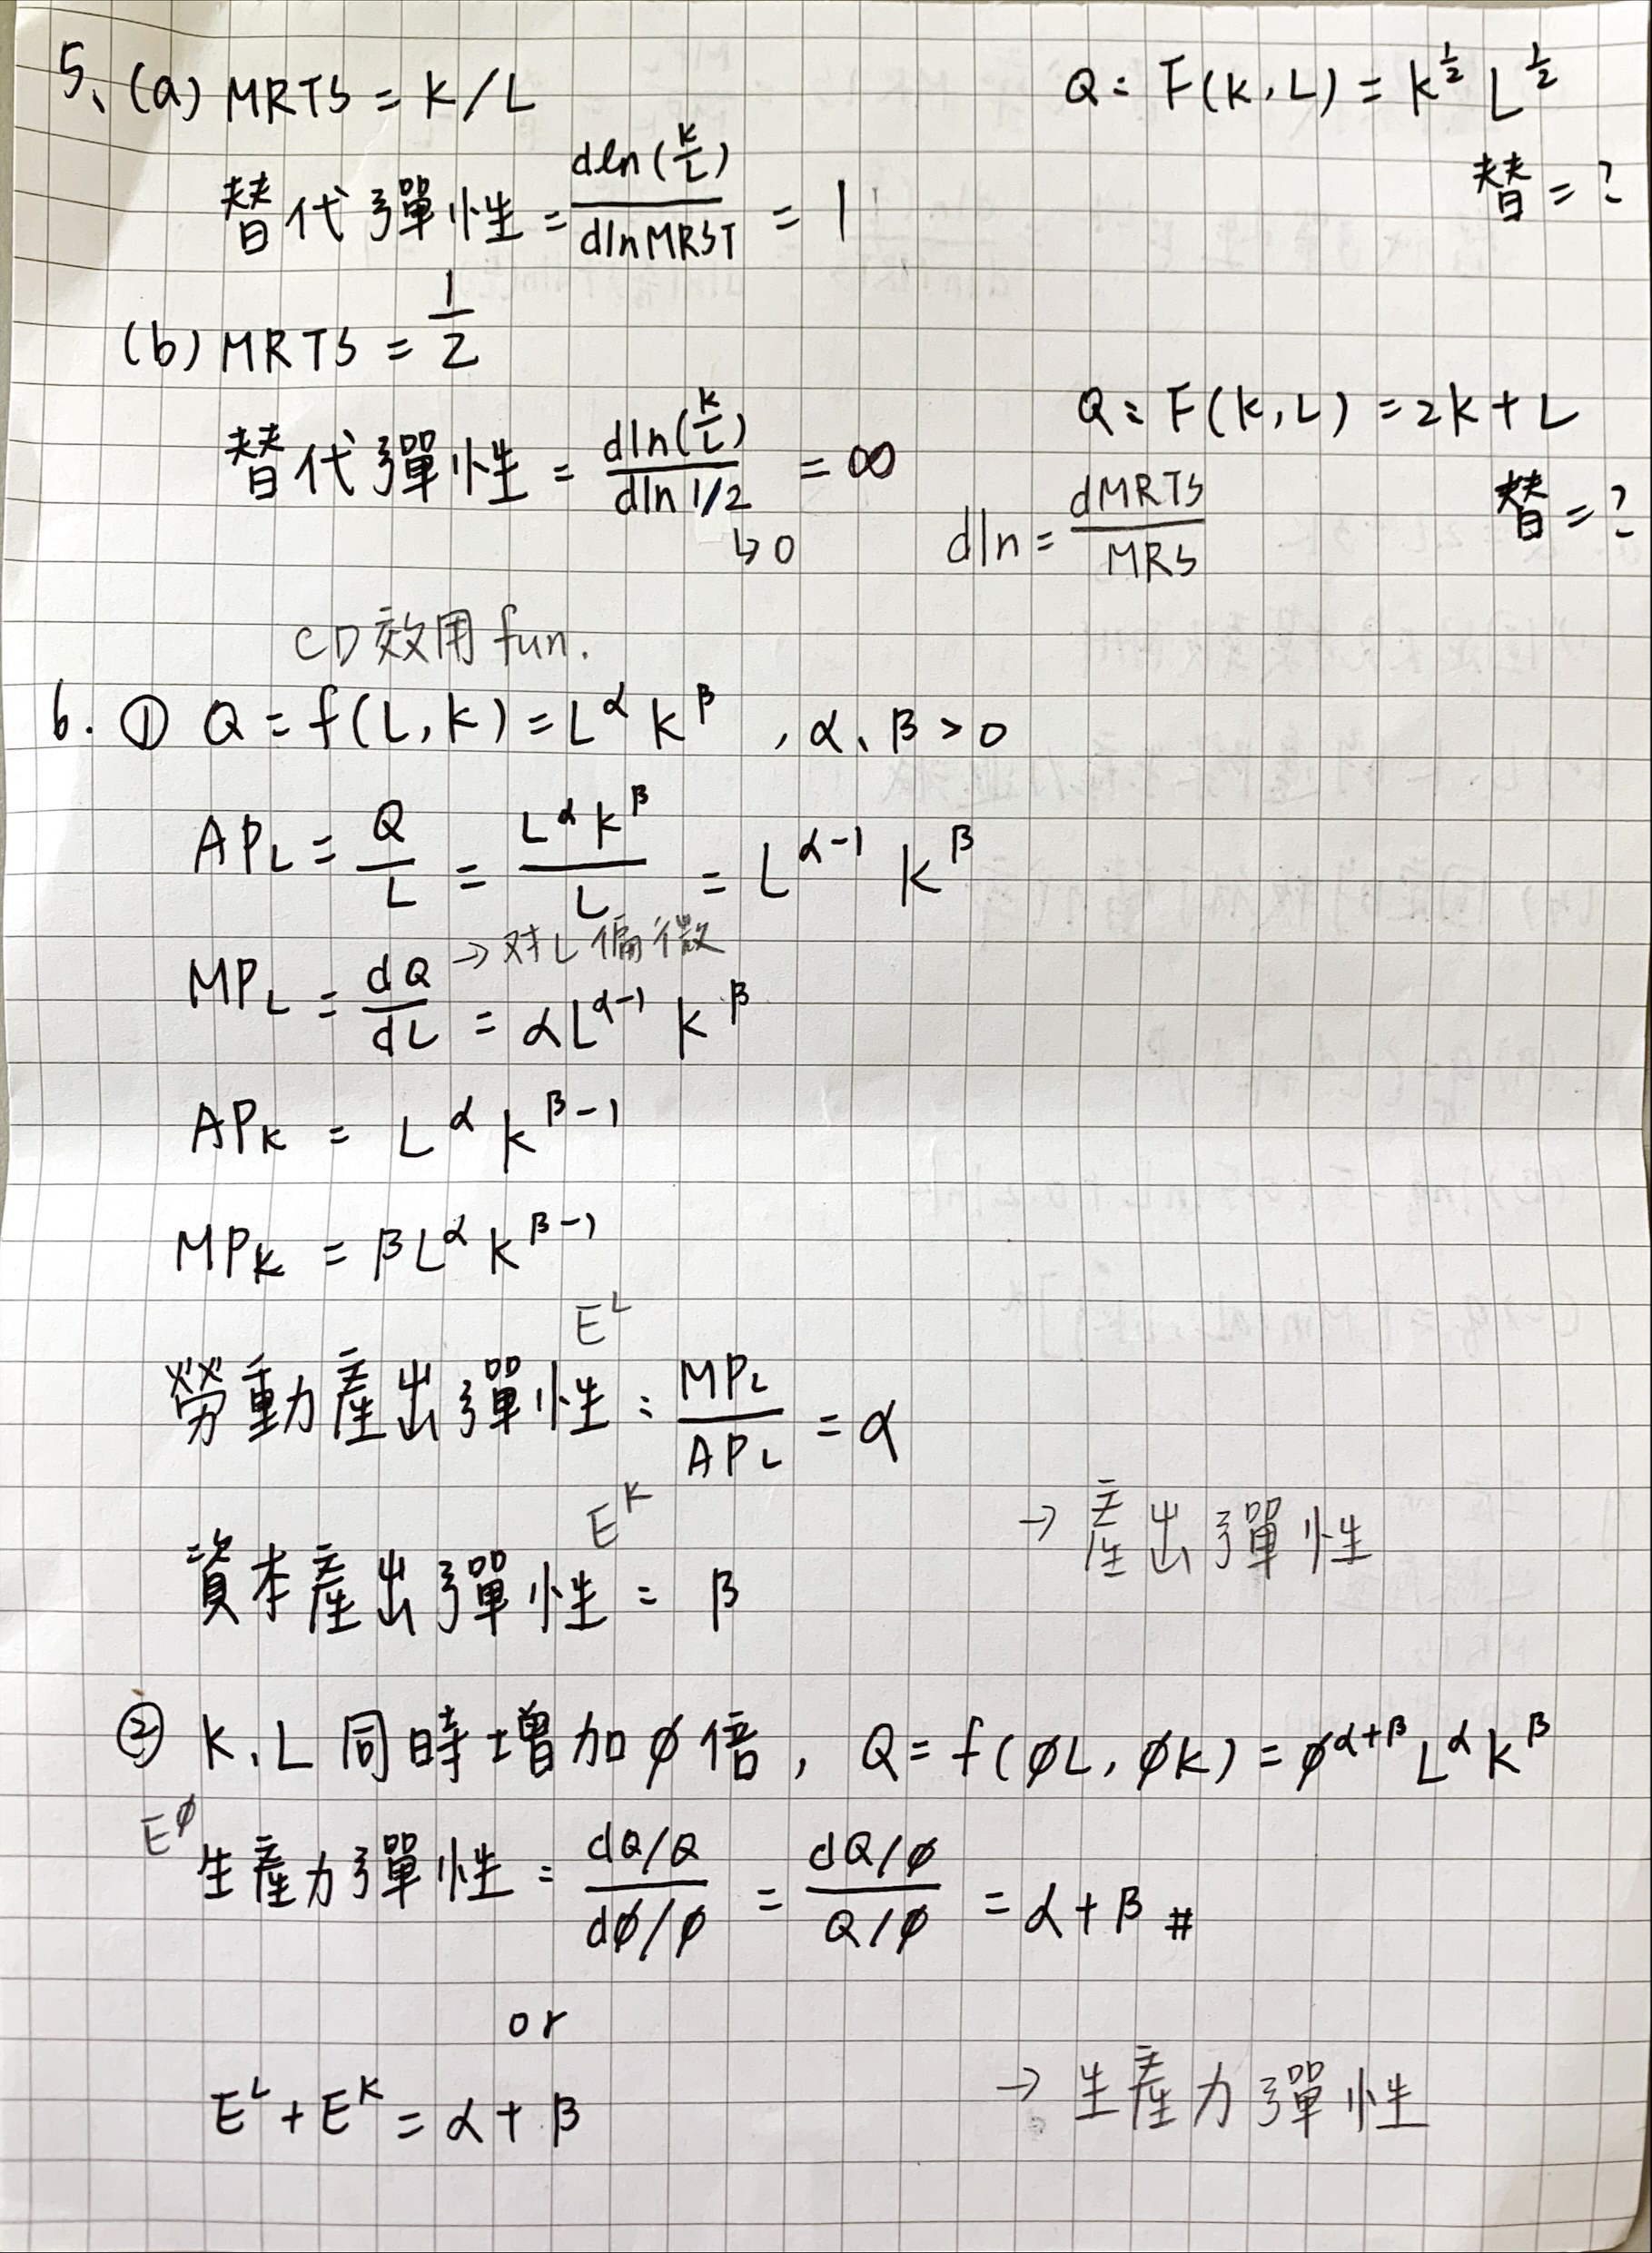 5、(a) MRTS = K/L
Q = F(K, L) = K^{1/2} L^{1/2}
替代彈性 = dln(K/L) / dlnMRST = 1
替 = ?
(b) MRTS = 1/2
Q = F(K, L) = 2K + L
替代彈性 = dln(K/L) / dln 1/2 = ∞
替 = ?
↳ 0
dln = dMRTS / MRS
CD效用fun.
6. ① Q = f(L, K) = L^α K^β , α、β > 0
AP_L = Q / L = L^α K^β / L = L^{α-1} K^β
→ 对L偏微
MP_L = dQ / dL = αL^{α-1} K^β
AP_K = L^α K^{β-1}
MP_K = βL^α K^{β-1}
E^L
勞動產出彈性 = MP_L / AP_L = α
E^K
→ 產出彈性
資本產出彈性 = β
② K、L 同時增加 ϕ 倍, Q = f(ϕL, ϕK) = ϕ^{α+β} L^α K^β
E^ϕ
生產力彈性 = dQ/Q / dϕ/ϕ = dQ/ϕ / Q/ϕ = α + β #
or
E^L + E^K = α + β
→ 生產力彈性